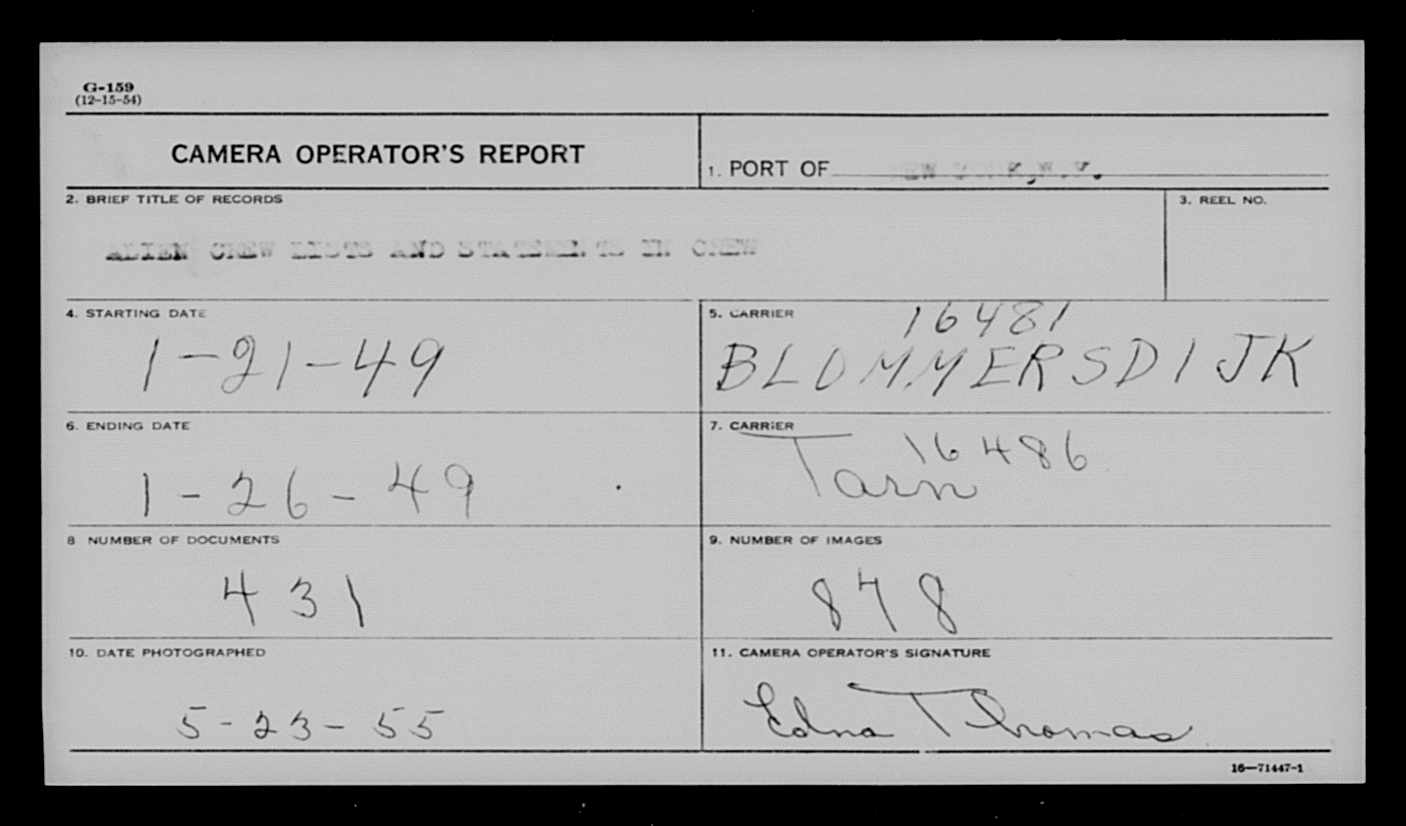 G-159
(12-15-54)
CAMERA OPERATOR'S REPORT
1. PORT OF NEW YORK, N.Y.
2. BRIEF TITLE OF RECORDS
3. REEL NO.
ALIEN CREW LISTS AND STATEMENTS IN CREW
4. STARTING DATE
1-21-49
5. CARRIER
16481
BLOMMERSDIJK
6. ENDING DATE
1-26-49
7. CARRIER
16486
Tarn
8 NUMBER OF DOCUMENTS
431
9. NUMBER OF IMAGES
878
10. DATE PHOTOGRAPHED
5-23-55
11. CAMERA OPERATOR'S SIGNATURE
Edna Thomas
16—71447-1